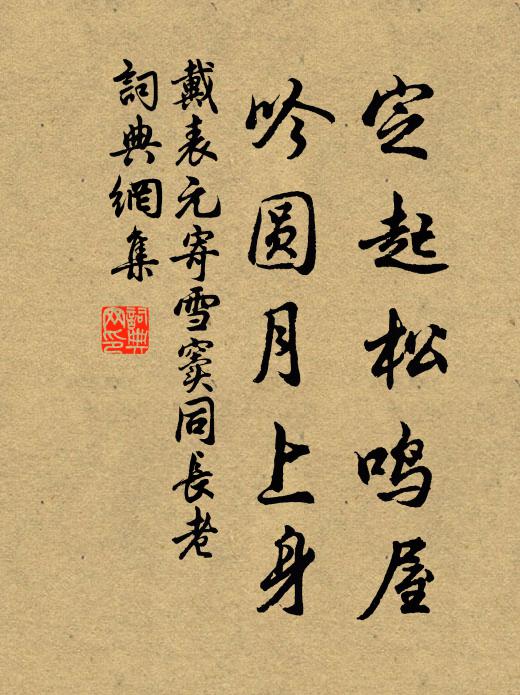 定起松鸣屋
吟圆月上身
戴表元寄雪窦同長老
詞典網集
詞典网印